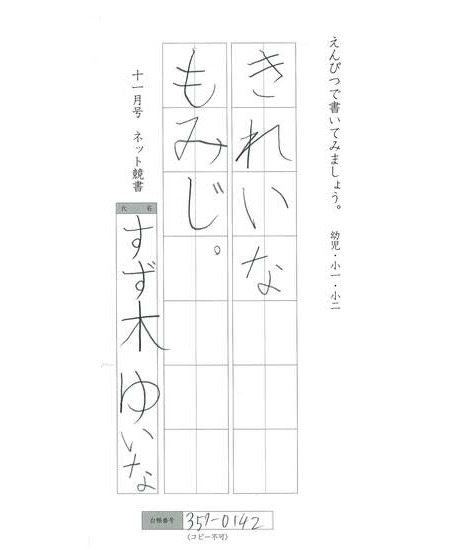 えんぴつで書いてみましょう。 幼児・小一・小二
きれいな
もみじ。
十一月号 ネット競書
氏名
すず木 ゆいな
台帳番号 357-0142
(コピー不可)